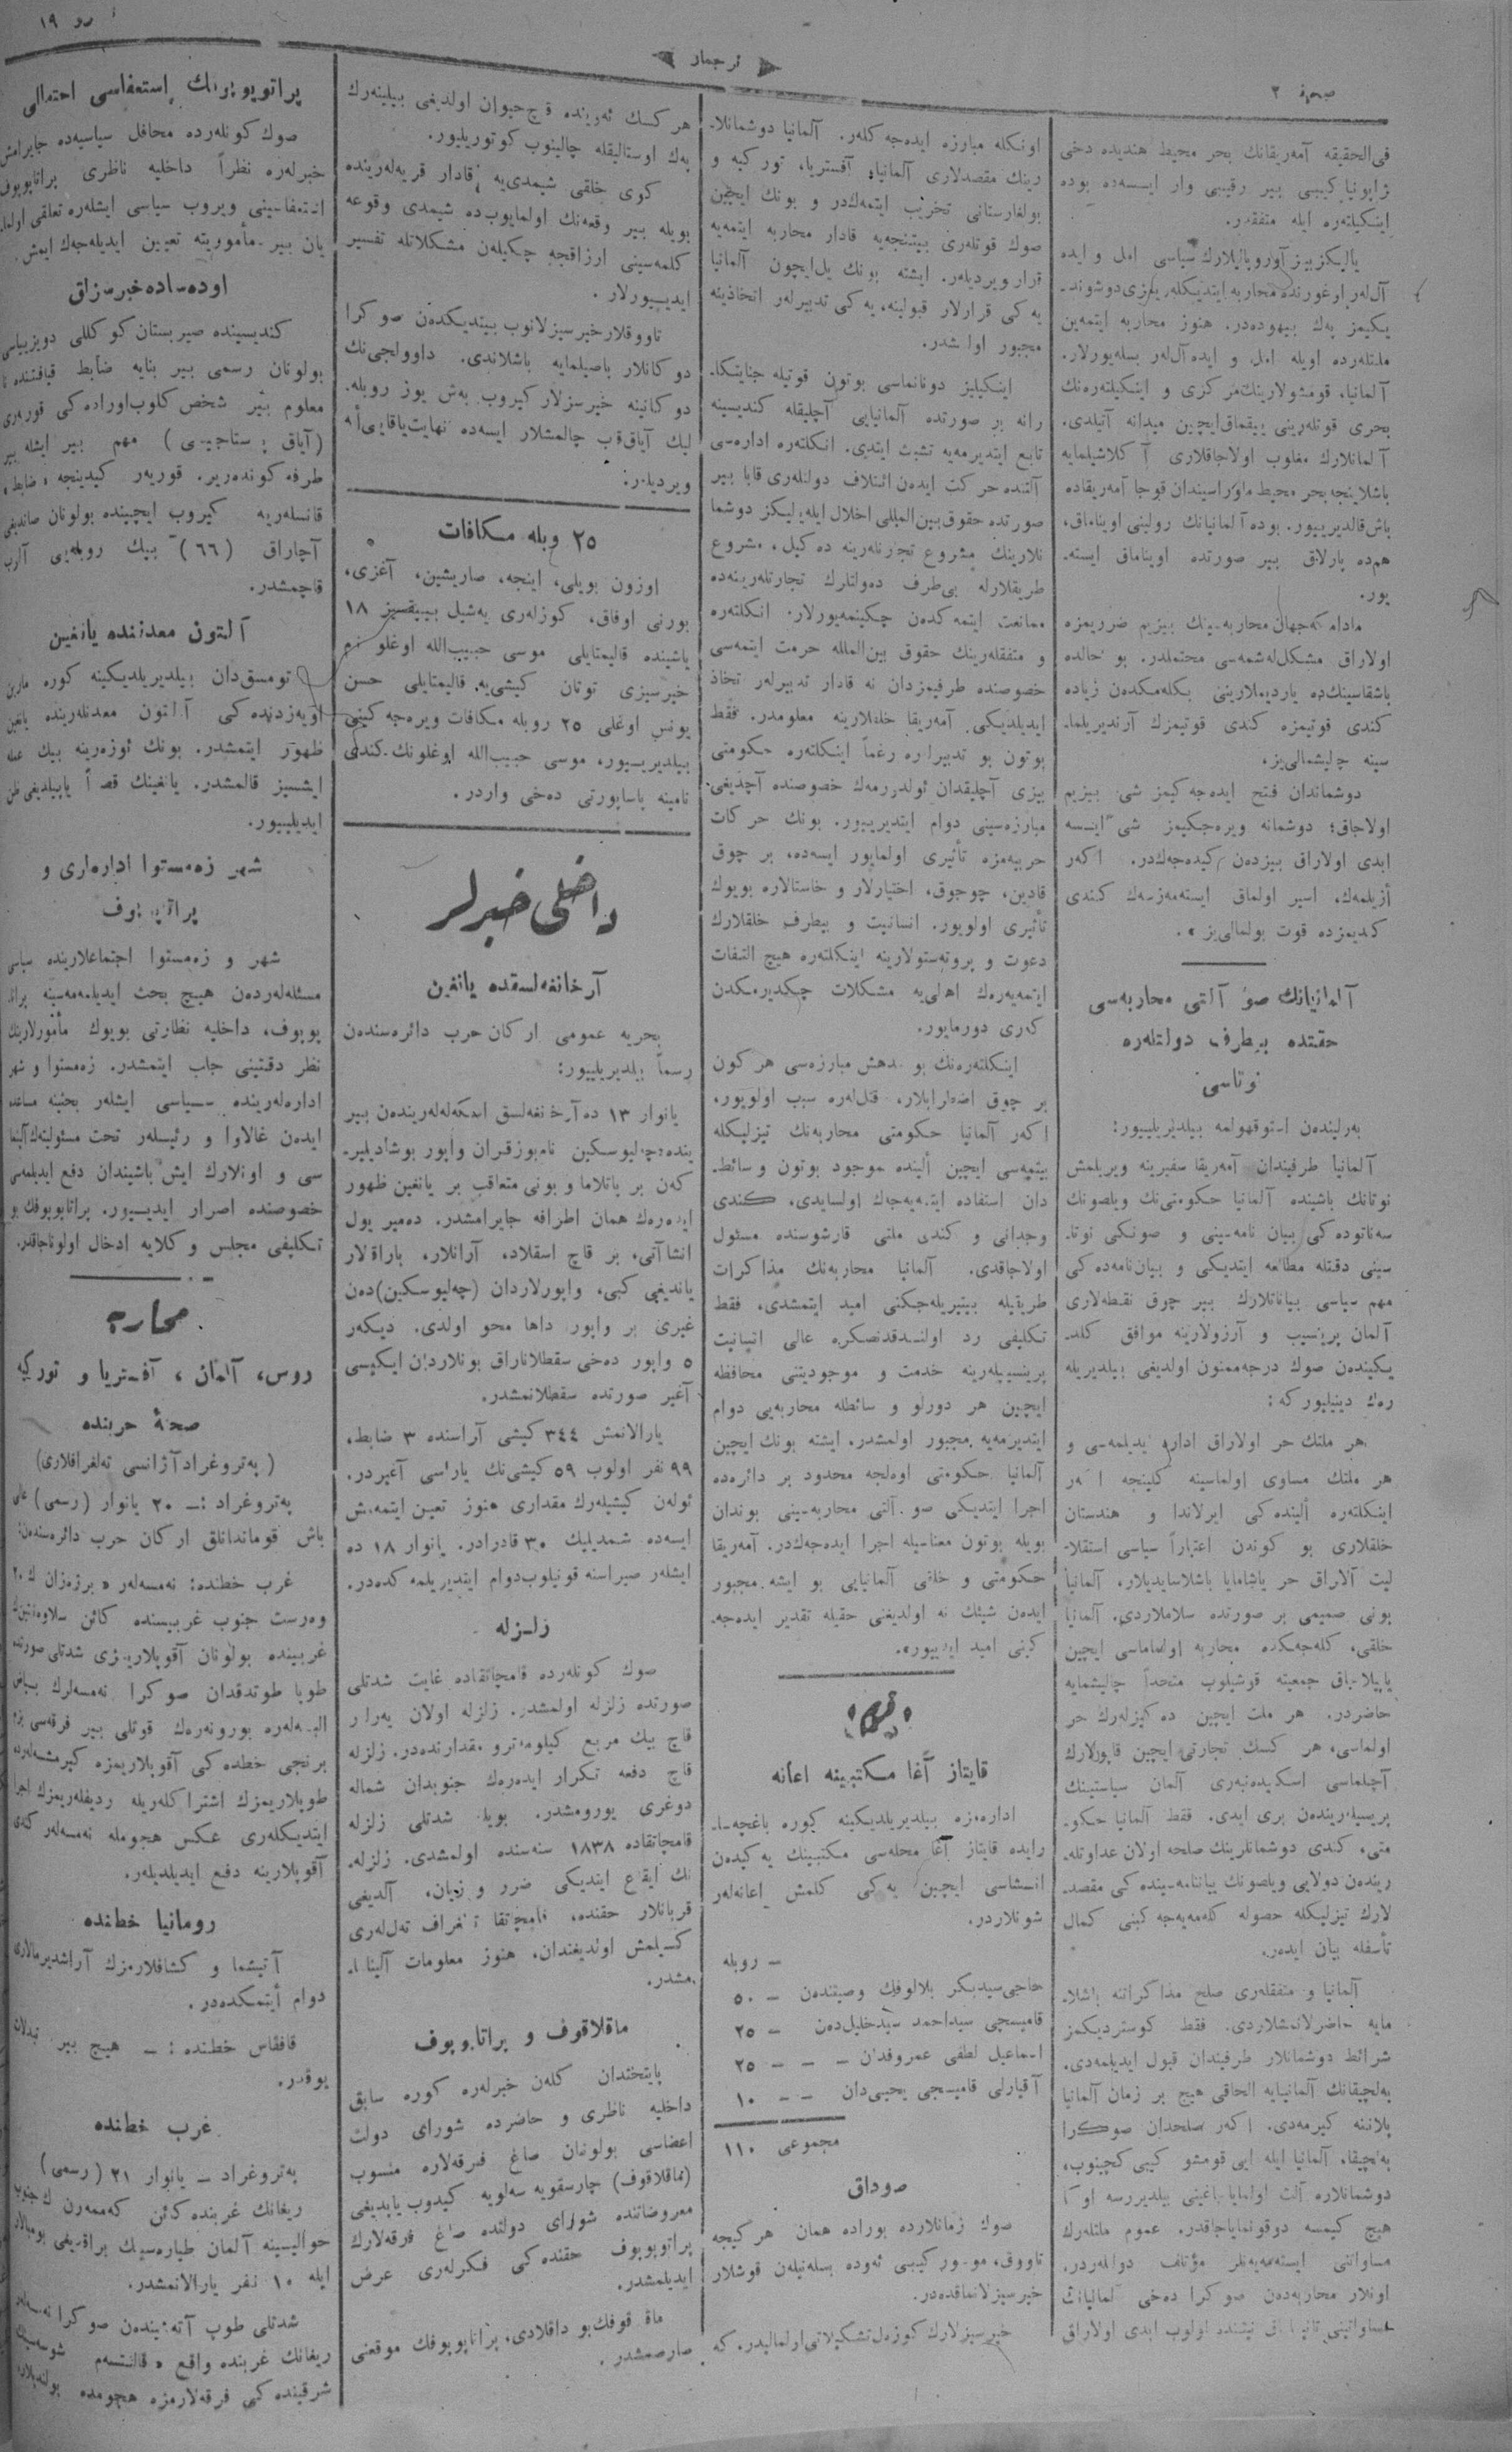 صحیفه ٢
ترجمان
فی‌الحقیقه آمه‌ریقانك بحر محیط هندیده دخی
ژاپونیا کیبی بیر رقیبی وار ایسه‌ده بوده
اینکیلتره ایله متفقدر.
یالیکز بیز آوروپالیلارك سیاسی امل و ایده
یکیمز پك بیهوده‌در. هنوز محاربه ایتمه‌ین
ملتلرده اویله امل و ایده آل‌لر بسله‌یورلار.
آلمانیا، قومشولارینك مرکزی و اینکیلتره‌نك
بحری قوتلرینی ییقماق ایچین میدانه آتیلدی.
آلمانلارك مغلوب اولاجاقلاری آکلاشیلمایه
باشلاینجه بحر محیط ماوراسیندان قوجا آمه‌ریقاده
باش قالدیریییور. بوده آلمانیانك رولینی اویناماق،
هم‌ده پارلاق بیر صورتده اویناماق ایسته‌
یور.
اولاراق مشکل‌له‌شمه‌سی محتملدر. بو حالده
باشقاسینك‌ده یاردیملارینی بکله‌مکدن زیاده
کندی قوتیمزه کندی قوتیمزك آرتدیریلما‌
سینه چالیشمالی‌یز.
دوشماندان فتح ایده‌جه‌کیمز شی بیزیم
اولاجاق؛ دوشمانه ویره‌جکیمز شی ایسه
ابدی اولاراق بیزدن کیده‌جه‌کدر. اکر
أزیلمه‌ك، اسیر اولماق ایسته‌مه‌زسه‌ك کندی
کندیمزده قوت بولمالی‌یز».
آلمانیانك صو آلتی محاربه‌سی
حقنده بیطرف دولتلره
نوتاسی
برلیندن استوقهولمه بیلدیریلییور:
آلمانیا طرفیندان آمه‌ریقا سفیرینه ویریلمش
نوتانك باشینده آلمانیا حکومتی‌نك ویلصونك
سه‌ناتوده‌کی بیان نامه‌سینی و صونکی نوتا‌
سینی دقتله مطالعه ایتدیکی و بیان‌نامه‌ده‌کی
مهم سیاسی بیاناتلارك بیر چوق نقطه‌لاری
آلمان پرینسیب و آرزولارینه موافق کلد‌
یکیندن صوك درجه ممنون اولدیغی بیلدیریله
رك دینیلیور که:
هر ملتك مساوی اولماسینه کلینجه اکر
اینکلتره ألینده‌کی ایرلاندا و هندستان
خلقلاری بو کوندن اعتباراً سیاسی استقلا‌
لیت آلاراق حر یاشامایا باشلاسایدیلار، آلمانیا
بونی صمیمی بر صورتده سلاملاردی. آلمانیا
خلقی، کله‌جه‌کده محاربه اولماماسی ایچین
یاپیلاجاق جمعیته قوشیلوب متحداً چالیشمایه
حاضردر. هر ملت ایچین ده‌کیزلرك حر
اولماسی، هر کسك تجارتی ایچین قاپولارك
آچلماسی اسکیدنبری آلمان سیاستینك
پرنسیپلریندن بری ایدی. فقط آلمانیا حکو‌
متی، کندی دوشمانلرینك صلحه اولان عداوتله‌
ریندن دولایی ویلصونك بیاننامه‌سینده‌کی مقصد‌
لارك تیزلیکله حصوله کلمه‌یه‌جه‌کینی کمال
تأسفله بیان ایدر.
آلمانیا و متفقلری صلح مذاکراتنه باشلا‌
مایه حاضرلانمشلاردی. فقط کوستردیکمز
شرائط دوشمانلار طرفیندان قبول ایدیلمه‌دی.
به‌لچیقانك آلمانیایه الحاقی هیچ بر زمان آلمانیا
پلاننه کیرمه‌دی. اکر صلحدان صوکرا
به‌لچیقا، آلمانیا ایله ایی قومشو کیبی کچینوب،
هیچ کیمسه دوقونمایاجاقدر. عموم ملتلرك
مساواتنی ایسته‌مه‌یه‌نلر مؤتلف دولتلردر.
اونکله مبارزه ایده‌جه‌کلر. آلمانیا دوشمانلا‌
رینك مقصدلاری آلمانیا، آفستریا، تورکیه و
بولغارستانی تخریب ایتمه‌کدر و بونك ایچین
صوك قوتلری بیتنجه‌یه قادار محاربه ایتمه‌یه
قرار ویردیلر. ایشته بونك یل‌ایچون آلمانیا
یه‌کی قرارلار قبولینه، یه‌کی تدبیرلر اتخاذینه
مجبور اولمشدر.
اینکیلیز دونانماسی بوتون قوتیله جنایتکا‌
رانه بر صورتده آلمانیایی آچلیقله کندیسینه
تابع ایتدیرمه‌یه تشبث ایتدی. انکلتره اداره‌سی
آلتنده حرکت ایدن ائتلاف دولتلری قابا بیر
صورتده حقوق بین‌المللی اخلال ایله‌یلیکز دوشما
نلارینك مشروع تجارتلرینه ده‌کیل، مشروع
طریقلارله بی‌طرف ده‌ولتلرك تجارتلرینه‌ده
ممانعت ایتمه‌کدن چکینمه‌یورلار. انکلتره
و متفقلرینك حقوق بین‌المللـه حرمت ایتمه‌سی
خصوصنده طرفیمزدان نه قادار تدبیرلر تخاذ
ایدیلدیکی آمه‌ریقا خلقلارینه معلومدر. فقط
بوتون بو تدبیرلره رغماً اینکلتره حکومتی
بیزی آچلیقدان ئولدرمه‌ك خصوصنده آچدیغی
مبارزه‌سینی دوام ایتدیریییور. بونك حرکات
حربیه‌مزه تأثیری اولمایور ایسه‌ده، بر چوق
قادین، چوجوق، اختیارلار و خاستالاره بویوك
تأثیری اولویور. انسانیت و بیطرف خلقلارك
دعوت و پروته‌ستولارینه اینکلتره هیچ التفات
ایتمه‌یه‌رك اهالی‌یه مشکلات چکدیرمکدن
کری دورمایور.
اینکلتره‌نك بو مدهش مبارزه‌سی هر کون
بر چوق اضطرابلار، قتللره سبب اولویور،
اکر آلمانیا حکومتی محاربه‌نك تیزلیکله
بیتمه‌سی ایچین ألینده موجود بوتون وسائط‌
دان استفاده ایتمه‌یه‌جه‌ك اولسایدی، کندی
وجدانی و کندی ملتی قارشوسنده مسئول
اولاجاقدی. آلمانیا محاربه‌نك مذاکرات
طریقیله بیتیریله‌جکنی امید ایتمشدی، فقط
تکلیفی رد اولندقدنصکره عالی انسانیت
پرینسیپلرینه خدمت و موجودیتنی محافظه
ایچین هر دورلو وسائطله محاربه‌یی دوام
ایتدیرمه‌یه مجبور اولمشدر. ایشته بونك ایچین
آلمانیا حکومتی اوملجه محدود بر دائره‌ده
اجرا ایتدیکی صو آلتی محاربه‌سینی بوندان
بویله بوتون معناسیله اجرا ایده‌جه‌کدر. آمه‌ریقا
حکومتی و خلقی آلمانیایی بو ایشه مجبور
ایدن شیئك نه اولدیغنی حقیله تقدیر ایده‌جه‌
کینی امید ایدییور».
قریم
قایتاز آغا مکتبینه اعانه
اداره‌مزه بیلدیریلدیکینه کوره باغچه‌سا‌
رایده قایتاز آغا محله‌سی مکتبینك یه‌کیدن
انشاسی ایچین یه‌کی کلمش اعانه‌لر
شونلاردر.
— روبله
حاجی سیدبکر بلالوفك وصیتندن — ٥٠
قامیسجی سیداحمد سیدخلیل‌دن — ٢٥
اسماعیل لطفی عمروفدان — — — ٢٥
آقیارلی قامیسجی یحیی‌دان — — ١٠
مجموعی ١١٠
صوداق
صوك زمانلارده بوراده همان هر کیجه
تاووق، موسور کیبی ئه‌وده بسله‌نیلن قوشلار
خیرسیزلانماقده‌در.
خیرسیزلارك کوزه‌ل تشکیلاتی اولمالیدر. که
هر کسك ئه‌وینده قاچ حیوان اولدیغی بیلینه‌رك
په‌ك اوستالیقله چالینوب کوتوریلیور.
کوی خلقی شیمدی‌یه قادار قریه‌لرینده
بویله بیر وقعه‌نك اولمایوب‌ده شیمدی وقوعه
کلمه‌سینی ارزاقجه چکیلن مشکلاتله تفسیر
ایدییورلار.
تاووقلار خیرسیزلانوب بیتدیکدن صوکرا
دوکانلار باصیلمایه باشلاندی. داوولجی‌نك
دوکانینه خیرسزلار کیروب به‌ش یوز روبله‌
لیك آیاق قاب چالمشلار ایسه‌ده نهایت یاقایی أله
ویردیلر:
٢٥ روبله مکافات
اوزون بویلی، اینجه، صاریشین، آغزی،
بورنی اوفاق، کوزلری یه‌شیل بیییقسیز ١٨
یاشینده قالیمتایلی موسی حبیب‌الله اوغلو نام
خیرسیزی توتان کیشی‌یه قالیمتایلی حسن
یونس اوغلی ٢٥ روبله مکافات ویره‌جه‌کینی
بیلدیریییور، موسی حبیب‌الله اوغلونك کندی
نامینه پاساپورتی ده‌خی واردر.
داخلی خبرلر
آرخانغه‌لسقده یانغین
بحریه عمومی ارکان حرب دائره‌سندن
رسماً بیلدیریلییور:
یانوار ١٣ ده آرخانغه‌لسق اسکه‌له‌لریندن بیر
که‌ن بر پاتلاما و بونی متعاقب بر یانغین ظهور
ایده‌رك همان اطرافه جایرامشدر. ده‌میر یول
انشاآتی، بر قاچ اسقلاد، آرانلار، باراقلار
یاندیغی کبی، واپورلاردان (چه‌لیوسکین)دن
غیری بر واپور داها محو اولدی. دیکر
٥ واپور ده‌خی سقطلاناراق بونلاردان ایکیسی
آغیر صورتده سقطلانمشدر.
یارالانمش ٣٤٤ کیشی آراسنده ٣ ضابط،
٩٩ نفر اولوب ٥٩ کیشی‌نك یاراسی آغیردر.
ئولن کیشیلرك مقداری هنوز تعین ایتمه‌مش
ایسه‌ده شمدیلیك ٣٠ قادرادر. یانوار ١٨ ده
ایشلر صیراسنه قونیلوب دوام ایتدیریلمه‌کده‌در.
زلزله
صوك کونلرده قامچاتقاده غایت شدتلی
صورتده زلزله اولمشدر. زلزله اولان یه‌رلر
قاچ بیك مربع کیلومترو مقدارنده‌در. زلزله
قاچ دفعه تکرار ایده‌رك جنوبدان شماله
دوغری یورومشدر. بویله شدتلی زلزله
قامچاتقاده ١٨٣٨ سنه‌سنده اولمشدی. زلزله‌
نك ایقاع ایتدیکی ضرر و زیان، آلدیغی
قربانلار حقنده، قامچاتقا تلغراف ته‌للری
کسیلمش اولدیغندان، هنوز معلومات آلینا ما‌
مشدر.
ماقلاقوف و پراتاپوپوف
پایتختدان کلن خبرلره کوره سابق
داخلیه ناظری و حاضرده شورای دولت
اعضاسی بولونان صاغ فرقه‌لاره منسوب
(ماقلاقوف) چارسقویه سه‌لویه کیدوب یاپدیغی
معروضاتنده شورای دولتده صاغ فرقه‌لارك
پراتوپوپوف حقنده‌کی فکرلری عرض
ایدیلمشدر.
صارصمشدر.
پراتوپوپوفنك استعفاسی احتمالی
صوك کونلرده محافل سیاسیه‌ده جایرامش
خبرلره نظراً داخلیه ناظری پراتاپوپوف
استعفاسینی ویروب سیاسی ایشلره تعلقی اولما‌
یان بیر مأموریته تعیین ایدیله‌جه‌ك ایمش.
اوده‌ساده خیرسزلق
بولونان رسمی بیر بنایه ضابط قیافتنده نا
معلوم بیر شخص کلوب اوراده‌کی قوریری
مهم بیر ایشله بیر
طرفه کونده‌ریر. قوریر کیدینجه «ضابط»
قانسله‌ریه کیروب ایچینده بولونان صاندیغی
آچاراق (٦٦) بیك روبله‌یی آلوب
قاچمشدر.
آلتون معدننده یانغین
تومسق‌دان بیلدیریلدیکینه کوره مارین
اویه‌زدنده‌کی آلتون معدنلرینده یانغین
ظهور ایتمشدر. بونك ئوزه‌رینه بیك عمله
ایشسیز قالمشدر. یانغینك قصداً یاپیلدیغی ظن
ایدیلییور.
شهر زه‌مستوا اداره‌لری و
پراتاپوپوف
شهر و زه‌مستوا اجتماعلارینده سیاسی
مسئله‌لردن هیچ بحث ایدیلمه‌مه‌سینه پراتا‌
پوپوف، داخلیه نظارتی بویوك مأمورلارینك
نظر دقتینی جلب ایتمشدر. زه‌مستوا و شهر
اداره‌لرینده سیاسی ایشلر بحثینه مساعده
ایدن غالاوا و رئیسلر تحت مسئولیته آلینما‌
سی و اونلارك ایش باشیندان دفع ایدیلمه‌سی
خصوصنده اصرار ایدییور. پراتاپوپوفك بو
تکلیفی مجلس وکلایه ادخال اولوناجاقدر.
محاربه
روس، آلمان، آفستریا و تورکیه
صحنهٔ حربنده
(په‌تروغراد آژانسی ته‌لغرافلاری)
په‌تروغراد :— ٢٠ یانوار (رسمی) عالی
باش قوماندانلق ارکان حرب دائره‌سندن:
وه‌رست جنوب غربیسنده کائن
غربینده بولونان آقوپلاریمزی شدتلی صورتده
طوپا طوتدقدان صوکرا نه‌مسه‌لرك بیاض
البسه‌لره بورونه‌رك قوتلی بیر فرقه‌سی بزم
برنجی خطده‌کی آقوپلاریمزه کیرمشسه‌لرده
طوپلاریمزك اشتراکلریله ردیفلریمزك اجرا
ایتدیکلری عکس هجومله نه‌مسه‌لر کندی
آقوپلارینه دفع ایدیلدیلر.
رومانیا خطنده
آتیشما و کشافلارمزك آراشدیرمالاری
دوام أیتمکده‌در.
قافقاس خطنده : — هیچ بیر تبدلات
یوقدر.
غرب خطنده
په‌تروغراد — یانوار ٢١ (رسمی)
ریغانك غربنده کائن که‌ممه‌رن ك جنوب
حوالیسینه آلمان طیاره‌سینك براقدیغی بومبالار
ایله ١٠ نفر یارالانمشدر.
شدتلی طوپ آتشیندن صوکرا نه‌مسه‌لر
ریغانك غربنده واقع «قالنتسه‌م» شوسه‌سینك
شرقینده‌کی فرقه‌لارمزه هجومده بولندیلارسه